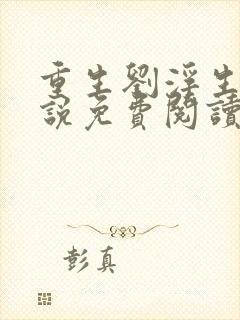 重生劉淫生
說免費閱讀
彭真